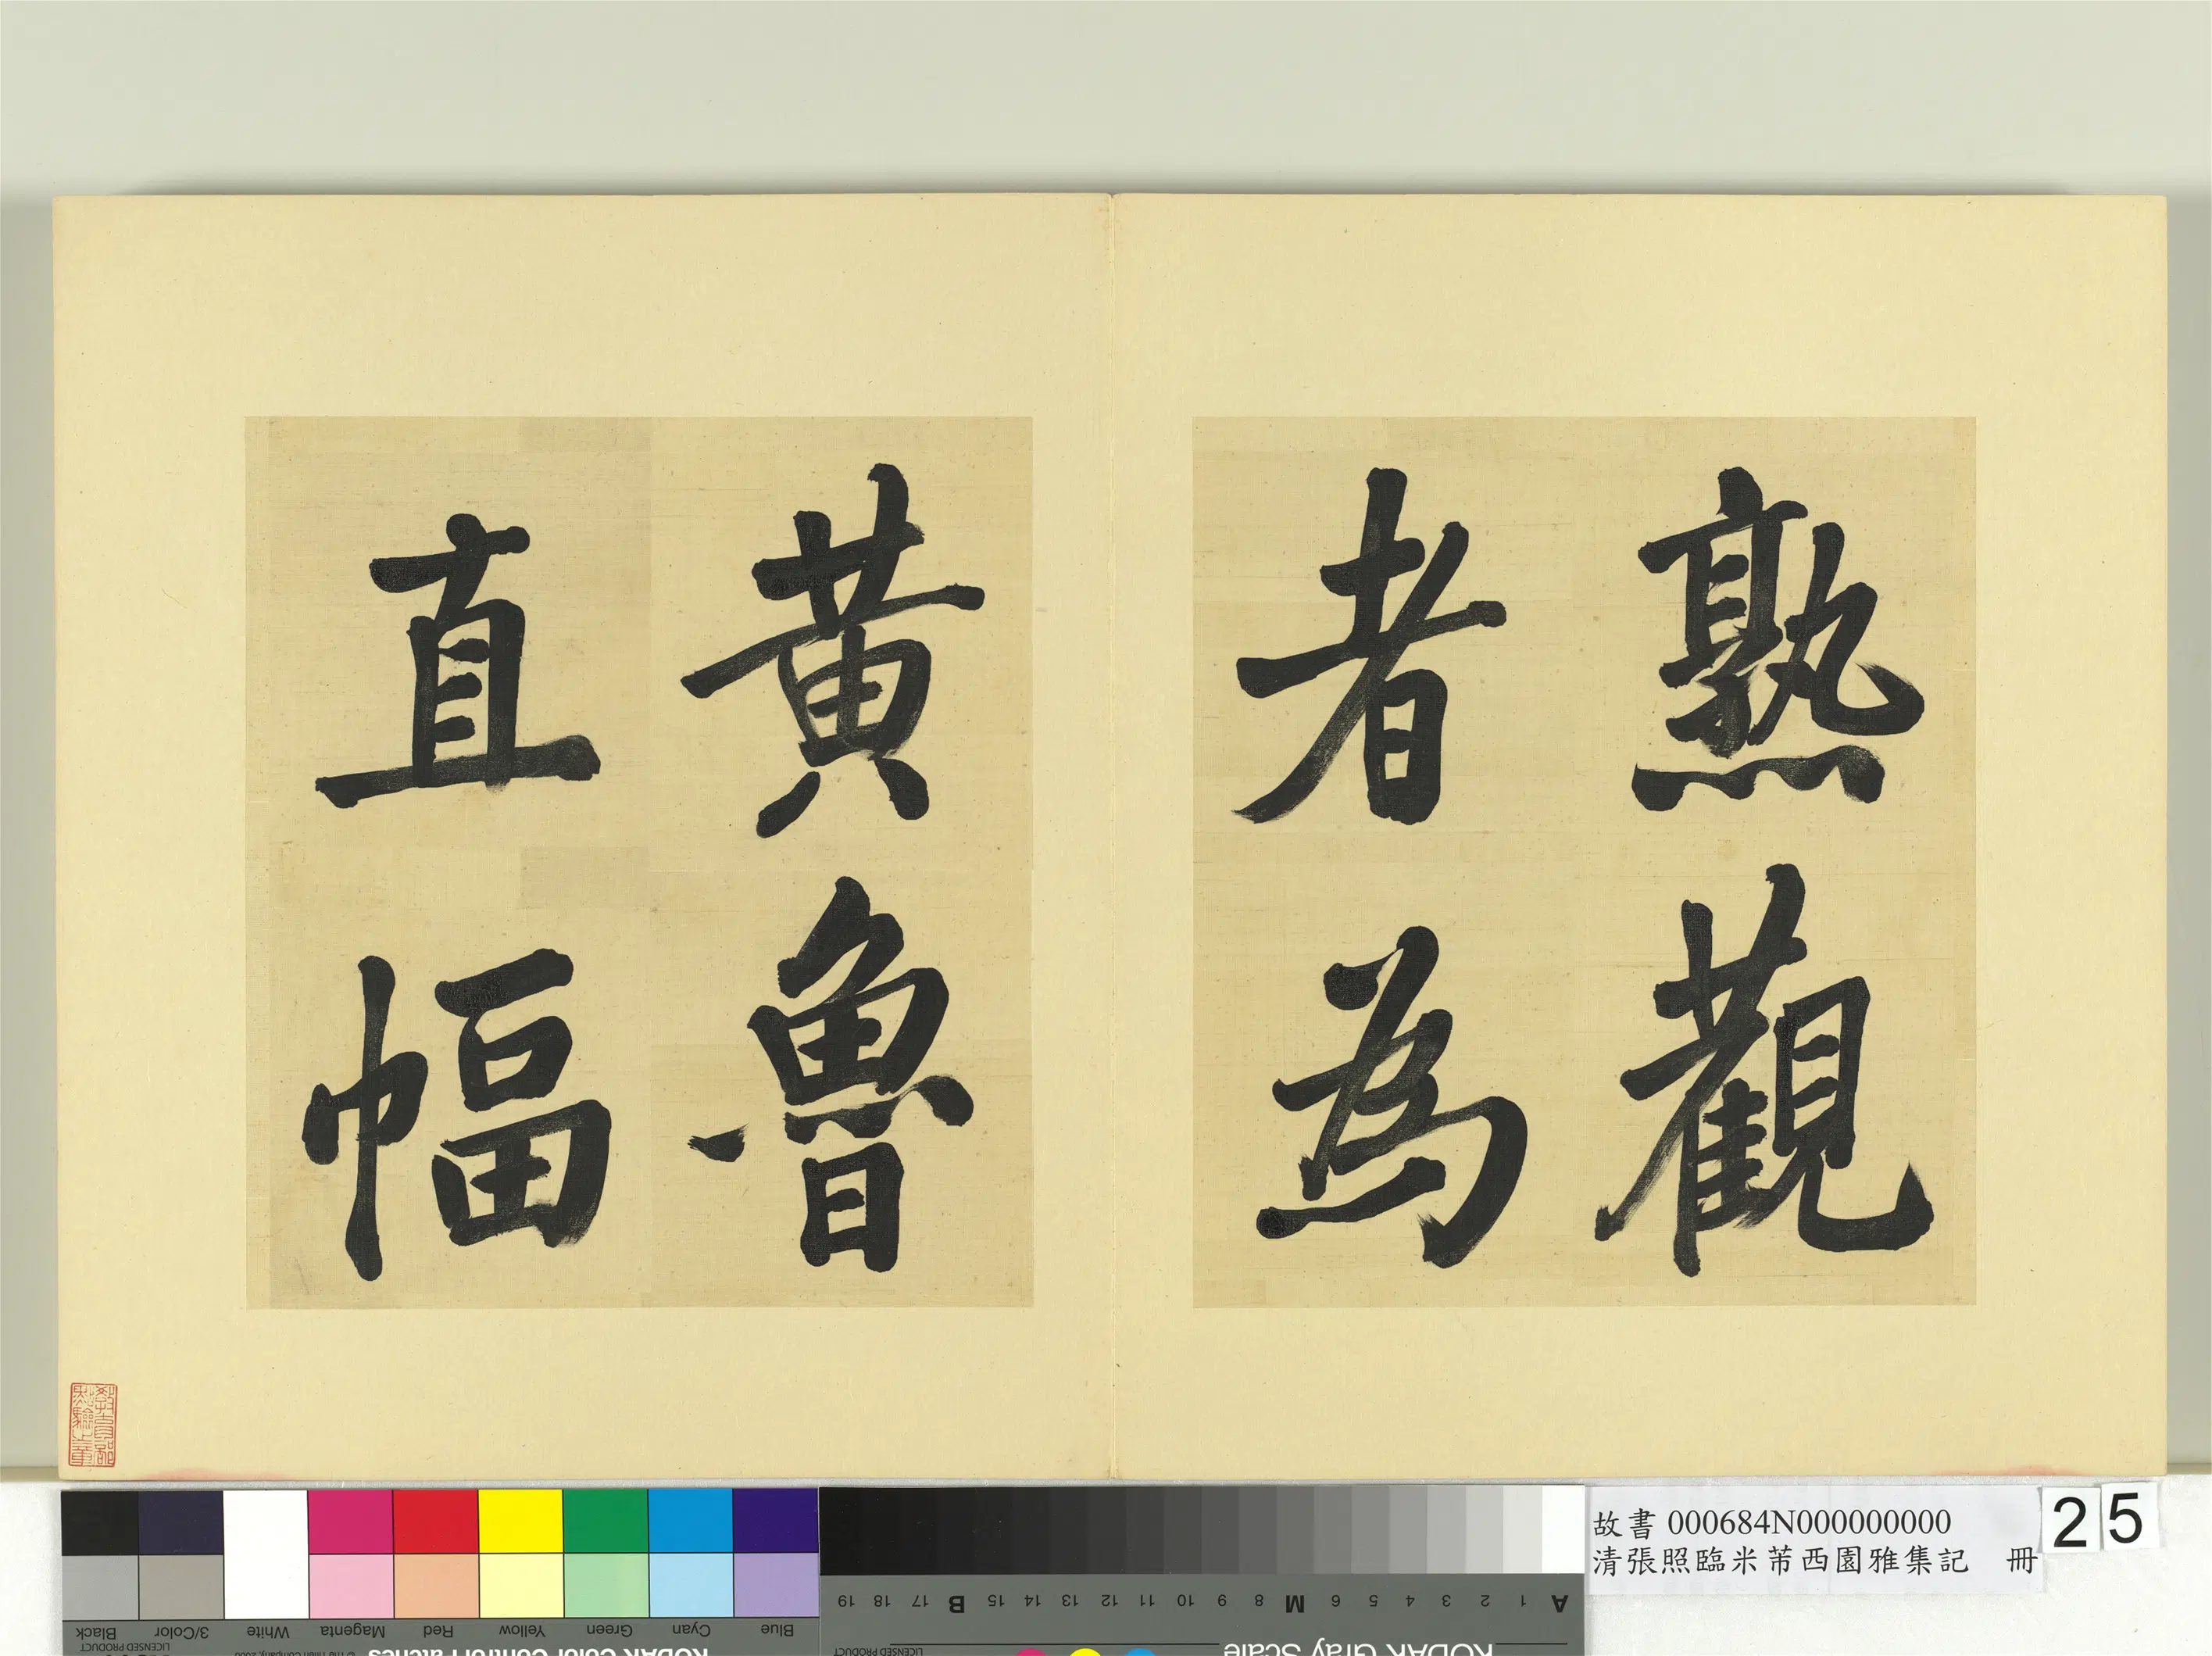 熟觀
者為
黃魯
直幅
教育部
點驗之章
故書 000684N000000000
清張照臨米芾西園雅集記 冊
25
Black
3/Color
White
Magenta
Red
Yellow
Green
Cyan
Blue
LICENSED PRODUCT
KODAK Color Control Patches
A 1 2 3 4 5 6 M 8 9 10 11 12 13 14 15 B 17 18 19
KODAK Gray Scale
LICENSED PRODUCT